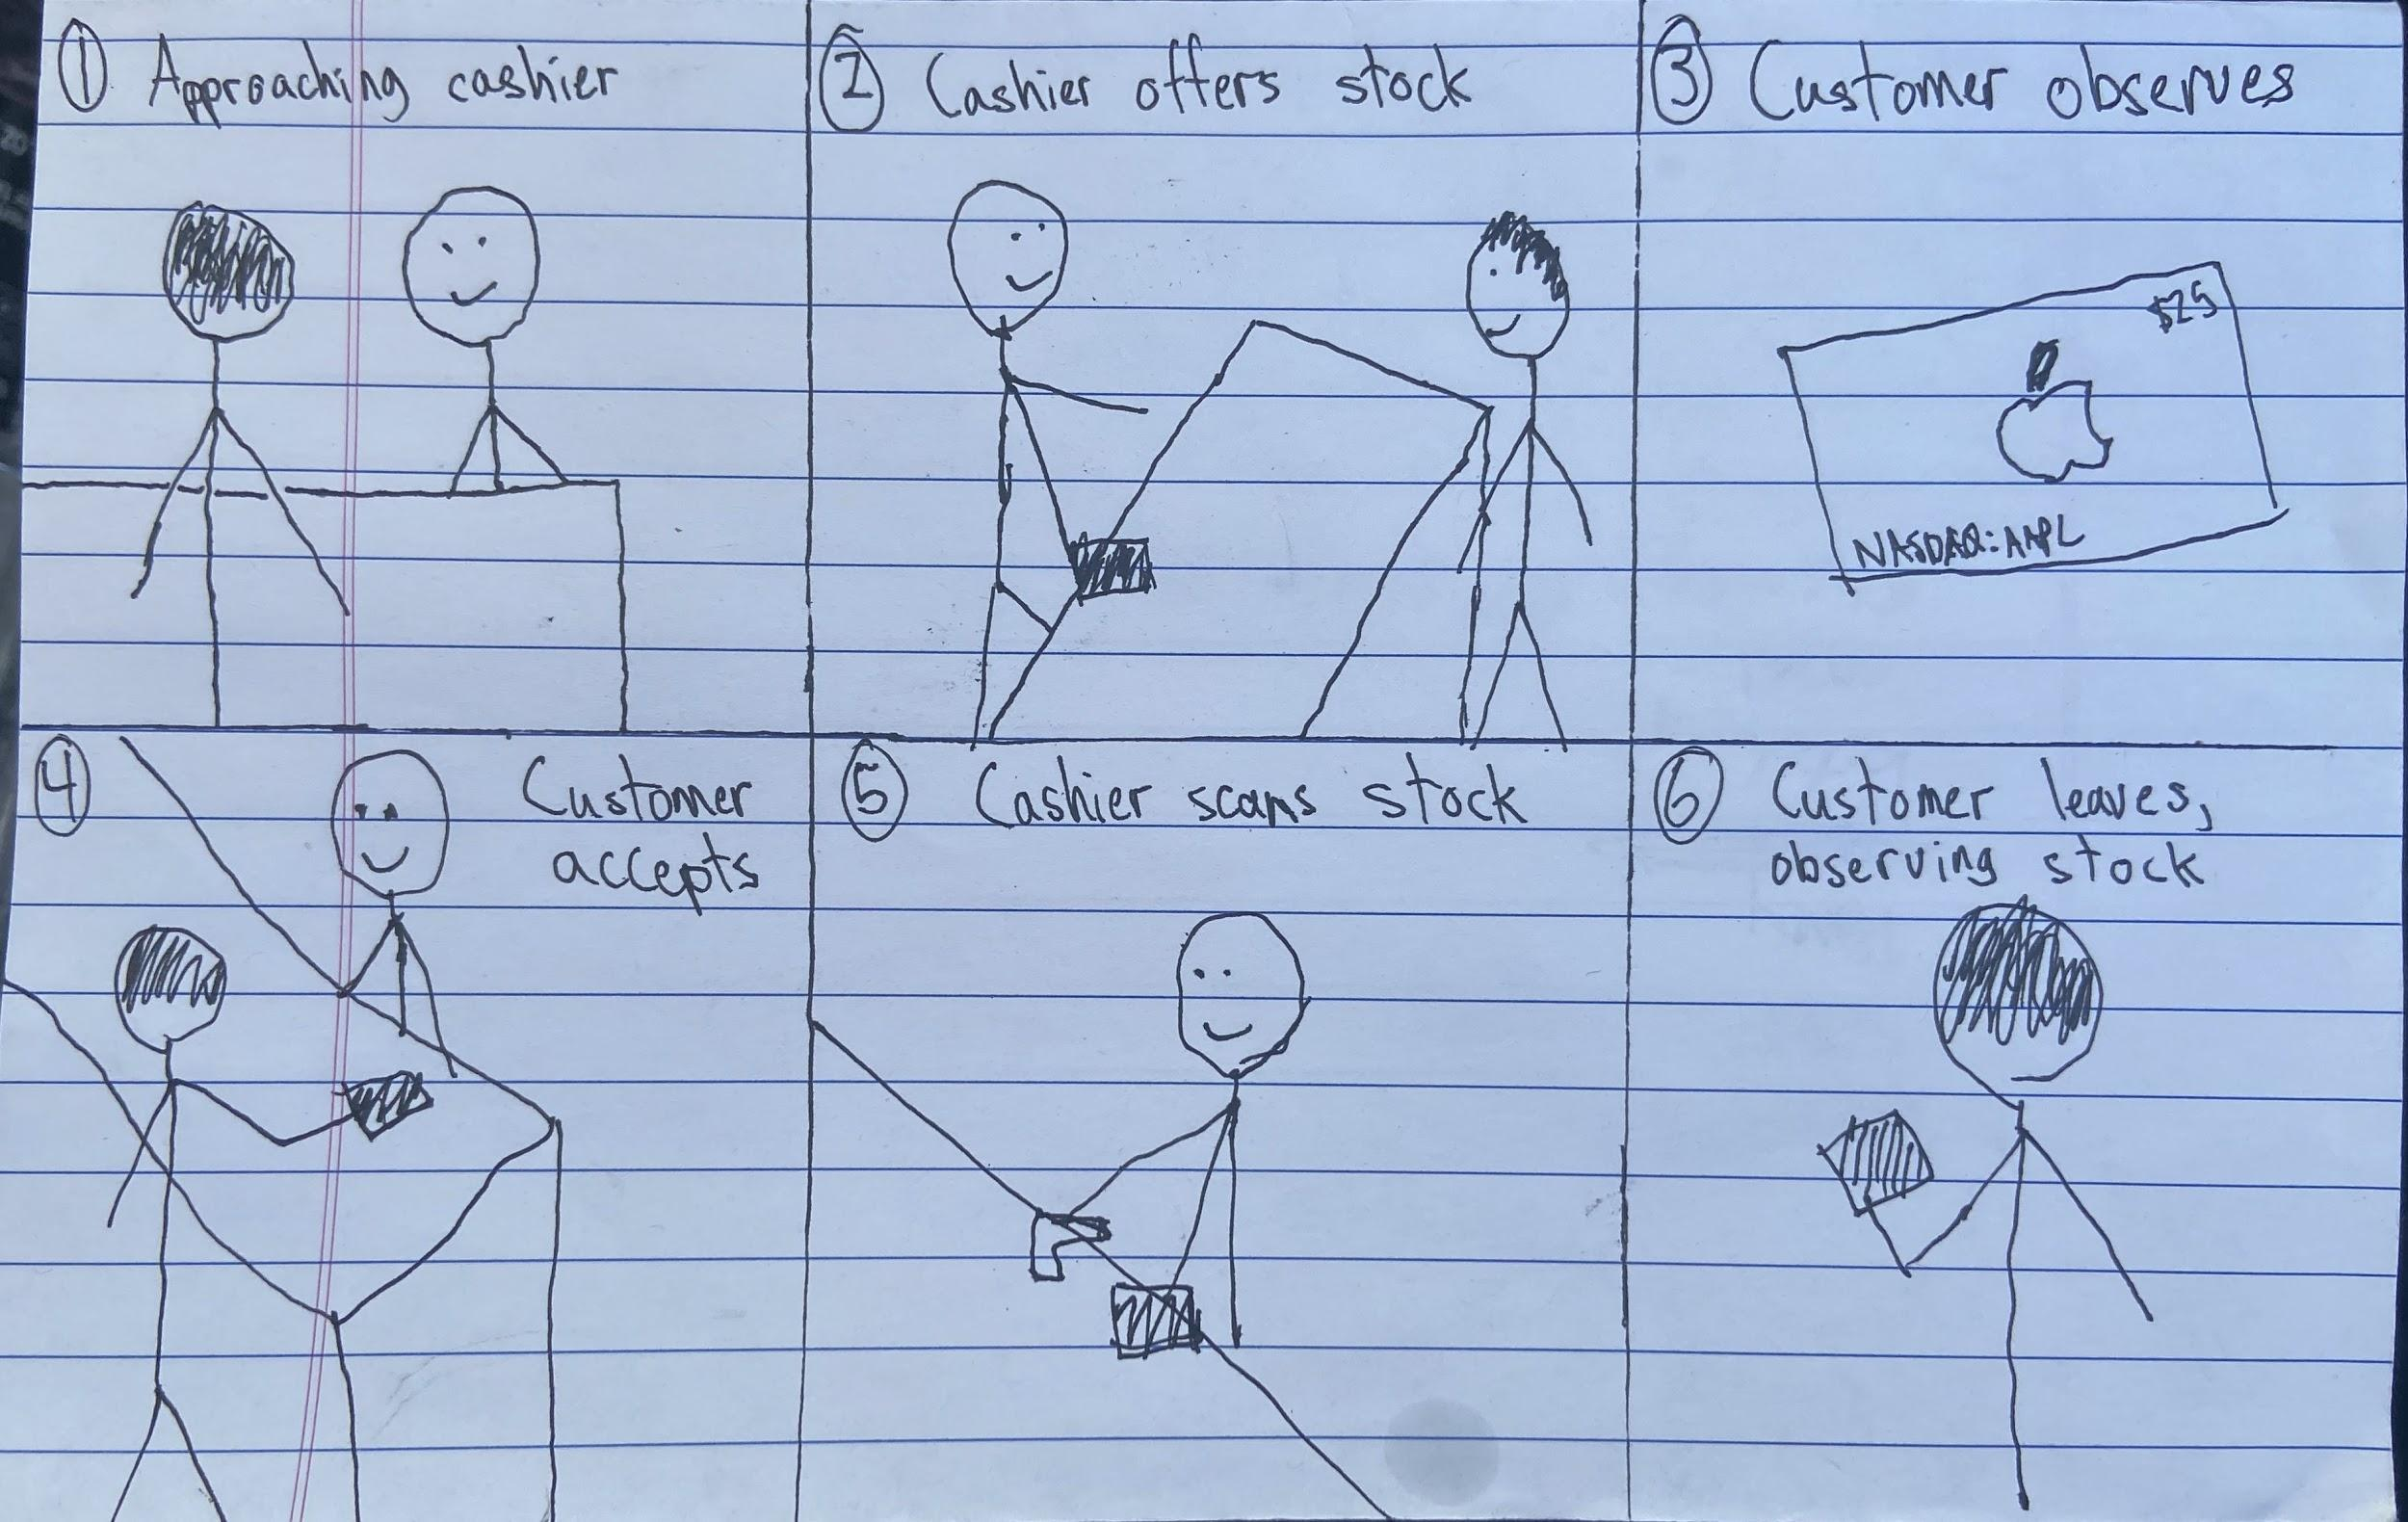 ① Approaching cashier
② Cashier offers stock
③ Customer observes
$25
NASDAQ: AAPL
④ Customer
accepts
⑤ Cashier scans stock
⑥ Customer leaves,
observing stock